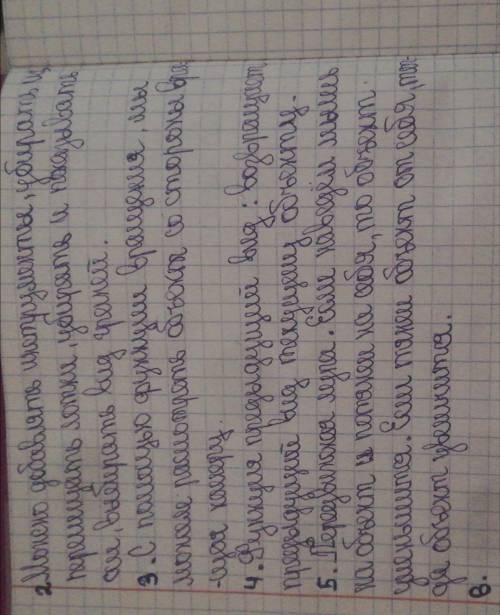 2. Можно добавлять инструменты, убирать и
перемещать лотки, убирать и показывать
ои, выбирать вид граней.
3. С помощью функции вращения, мы
можем расмотреть объект со стороны вра-
-щая камеру.
4. Функция предыдущий вид: возвращает
предыдущий вид текущему объекту.
5. Передвижская лупа. Если наведём мышь
на объект и потянем на себя, то объект
уменьшится. Если тянем объект от себя, то-
да объект увеличится.
8.